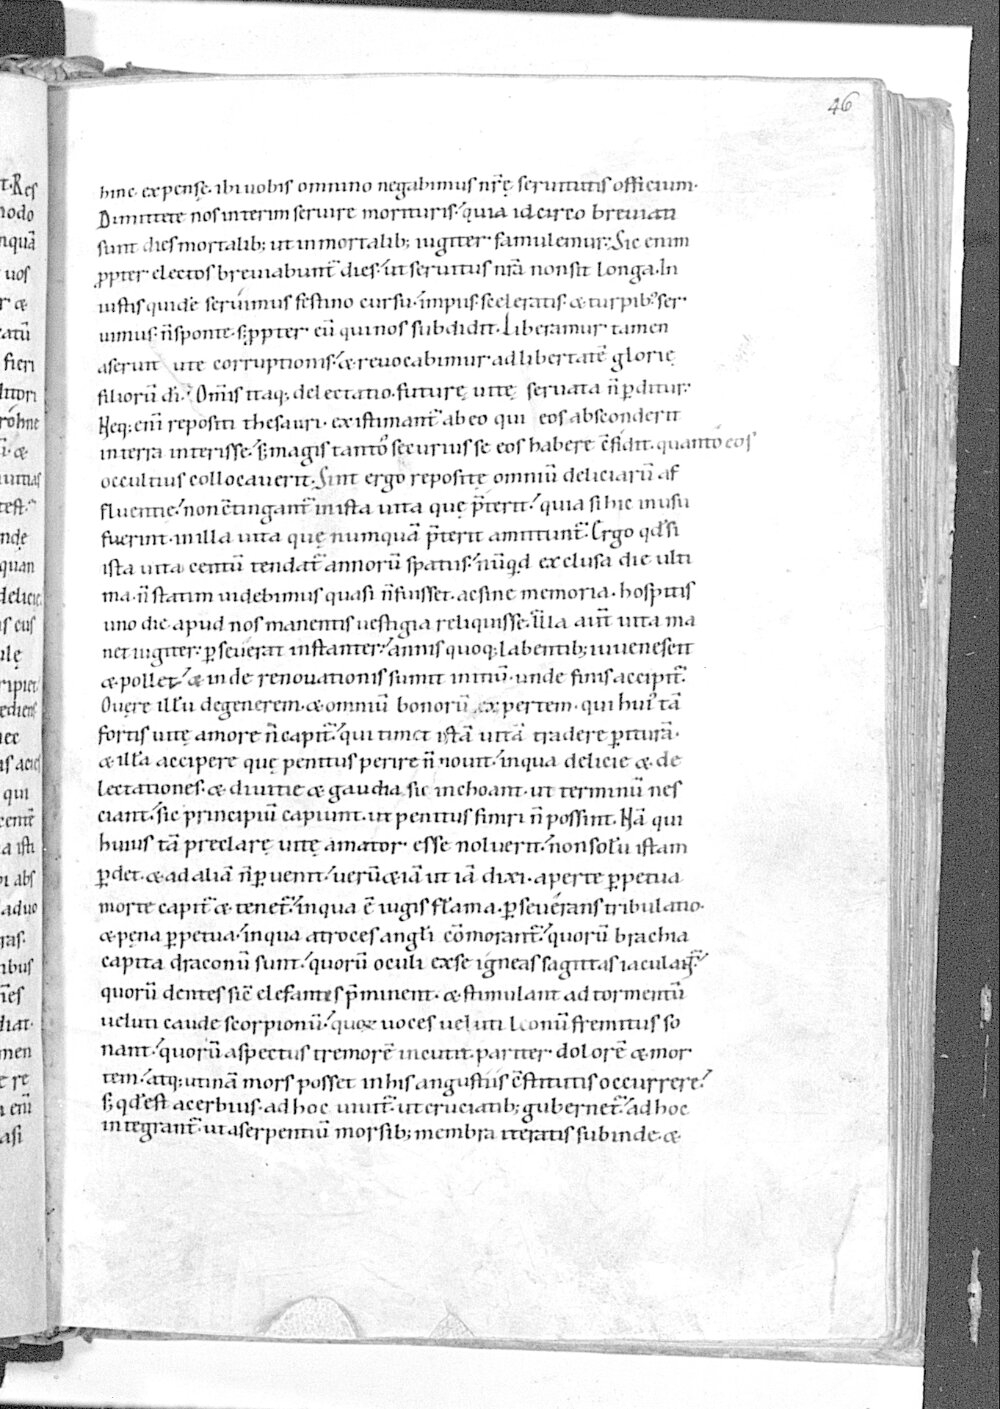 46
hinc expensę. ibi uobis omnino negabimus nr̄ę seruitutis officium.
Dimittete nos interim seruire morituris. quia idcirco breuiati
sunt dies mortalib; ut inmortalib; iugiter famulemur. Sic enim
ꝓpter electos breuiabunt̄ dies. ut seruitus nr̄a non sit longa. In
iustis quidē seruimus festino cursu. impiis. sceleratis. æ turpib; ser
uimus. n̄ sponte. s; ꝓpter eū qui nos subdidit. Liberamur tamen
a seruit ute corruptionis. æ reuocabimur ad libertatē glorię
filiorū dī. Om̄is itaq; delectatio. futurę uitę seruata n̄ ꝑditur.
Neq; enī repositi thesauri. existimant̄ ab eo qui eos absconderit
in terra interisse. s; magis tanto securius se eos habere c̄fidit. quanto eos
occultius collocauerit. Sint ergo repositę omniū deliciarū af
fluentie. non c̄tingant̄ in ista uita quę p̄terit. quia si hic in usu
fuerint. in illa uita quę numquā p̄terit amittunt̄. Ergo qd si
ista uita centū tendat̄ annorū spatiis. nūqd exclusa die ulti
ma. n̄ statim uidebimus quasi n̄ fuisset. ac sine memoria. hospitis
uno die apud nos manentis uestigia reliquisse. Illa aut̄ uita ma
net iugiter. ꝑseuerat instanter. annis quoq; labentib; iuuenescit
æ pollet. æ inde renouationis sumit initiū. unde finis accipit̄.
O uere illū degenerem. æ omniū bonorū expertem. qui hui' tā
fortis uitę amore n̄ capit̄. qui timet istā uitā tradere ꝑiturā.
æ illā accipere quę penitus perire n̄ nouit. in qua delicie æ de
lectationes. æ diuitie æ gaudia sic inchoant. ut terminū nes
ciant. sic principiū capiunt. ut penitus finiri n̄ possint. Nā qui
huius tā preclarę uitę amator esse noluerit. non solū istam
ꝑdet. æ ad aliā n̄ ꝑuenit. uerū æiā ut iā dixi. aperte ꝑpetua
morte capit̄ æ tenet̄. in qua ē iugis flāma. ꝑseuerans tribulatio.
æ pęna ꝑpetua. in qua atroces angli cōmorant̄. quorū brachia
capita draconū sunt. quorū oculi ex se igneas sagittas iaculant̄.
quorū dentes sic̄ elefantes p̄minent. æ stimulant ad tormentū
ueluti caude scorpionū. quoꝝ uoces ueluti leonū fremitus so
nant. quorū aspectus tremorē incutit. pariter dolorē æ mor
tem. atq; utinā mors posset in his angustiis c̄stitutis occurrere.
s; qd est acerbius. ad hoc uiuit̄. ut cruciatib; gubernet̄. ad hoc
integrant̄. ut a serpentiū morsib; membra iteratis subinde. æ